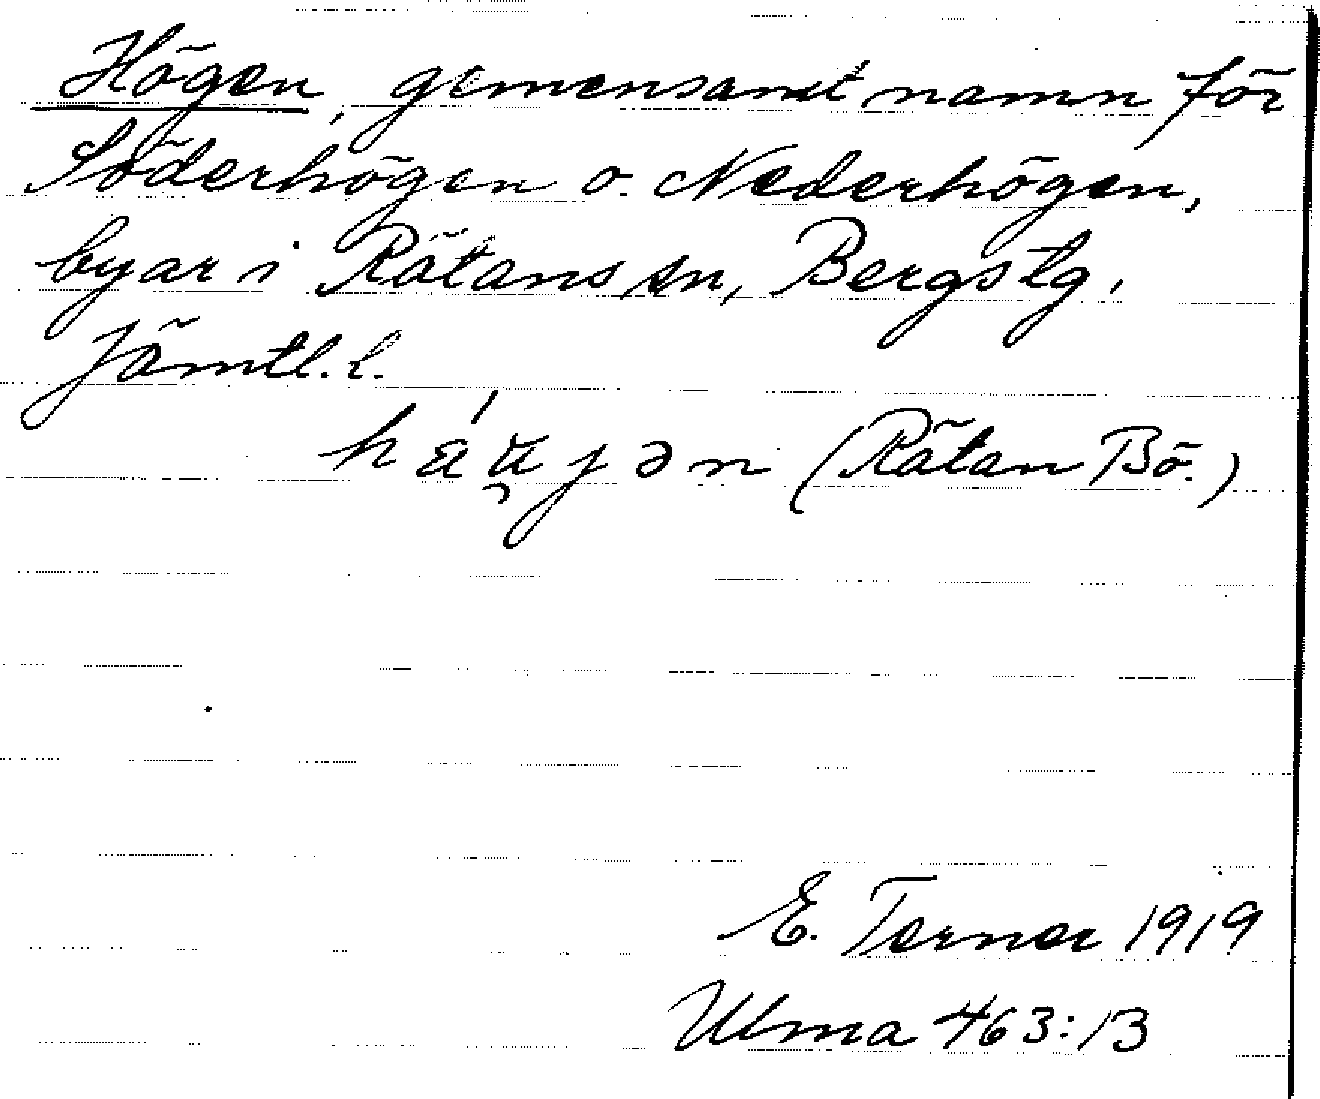 Högen, gemensamt namn för
Söderhögen o. Nederhögen,
byar i Rätans sn, Bergs tg.
Jämtl. l.
(Rätan Bö.)
E. Terner 1919
Ulma 463:13